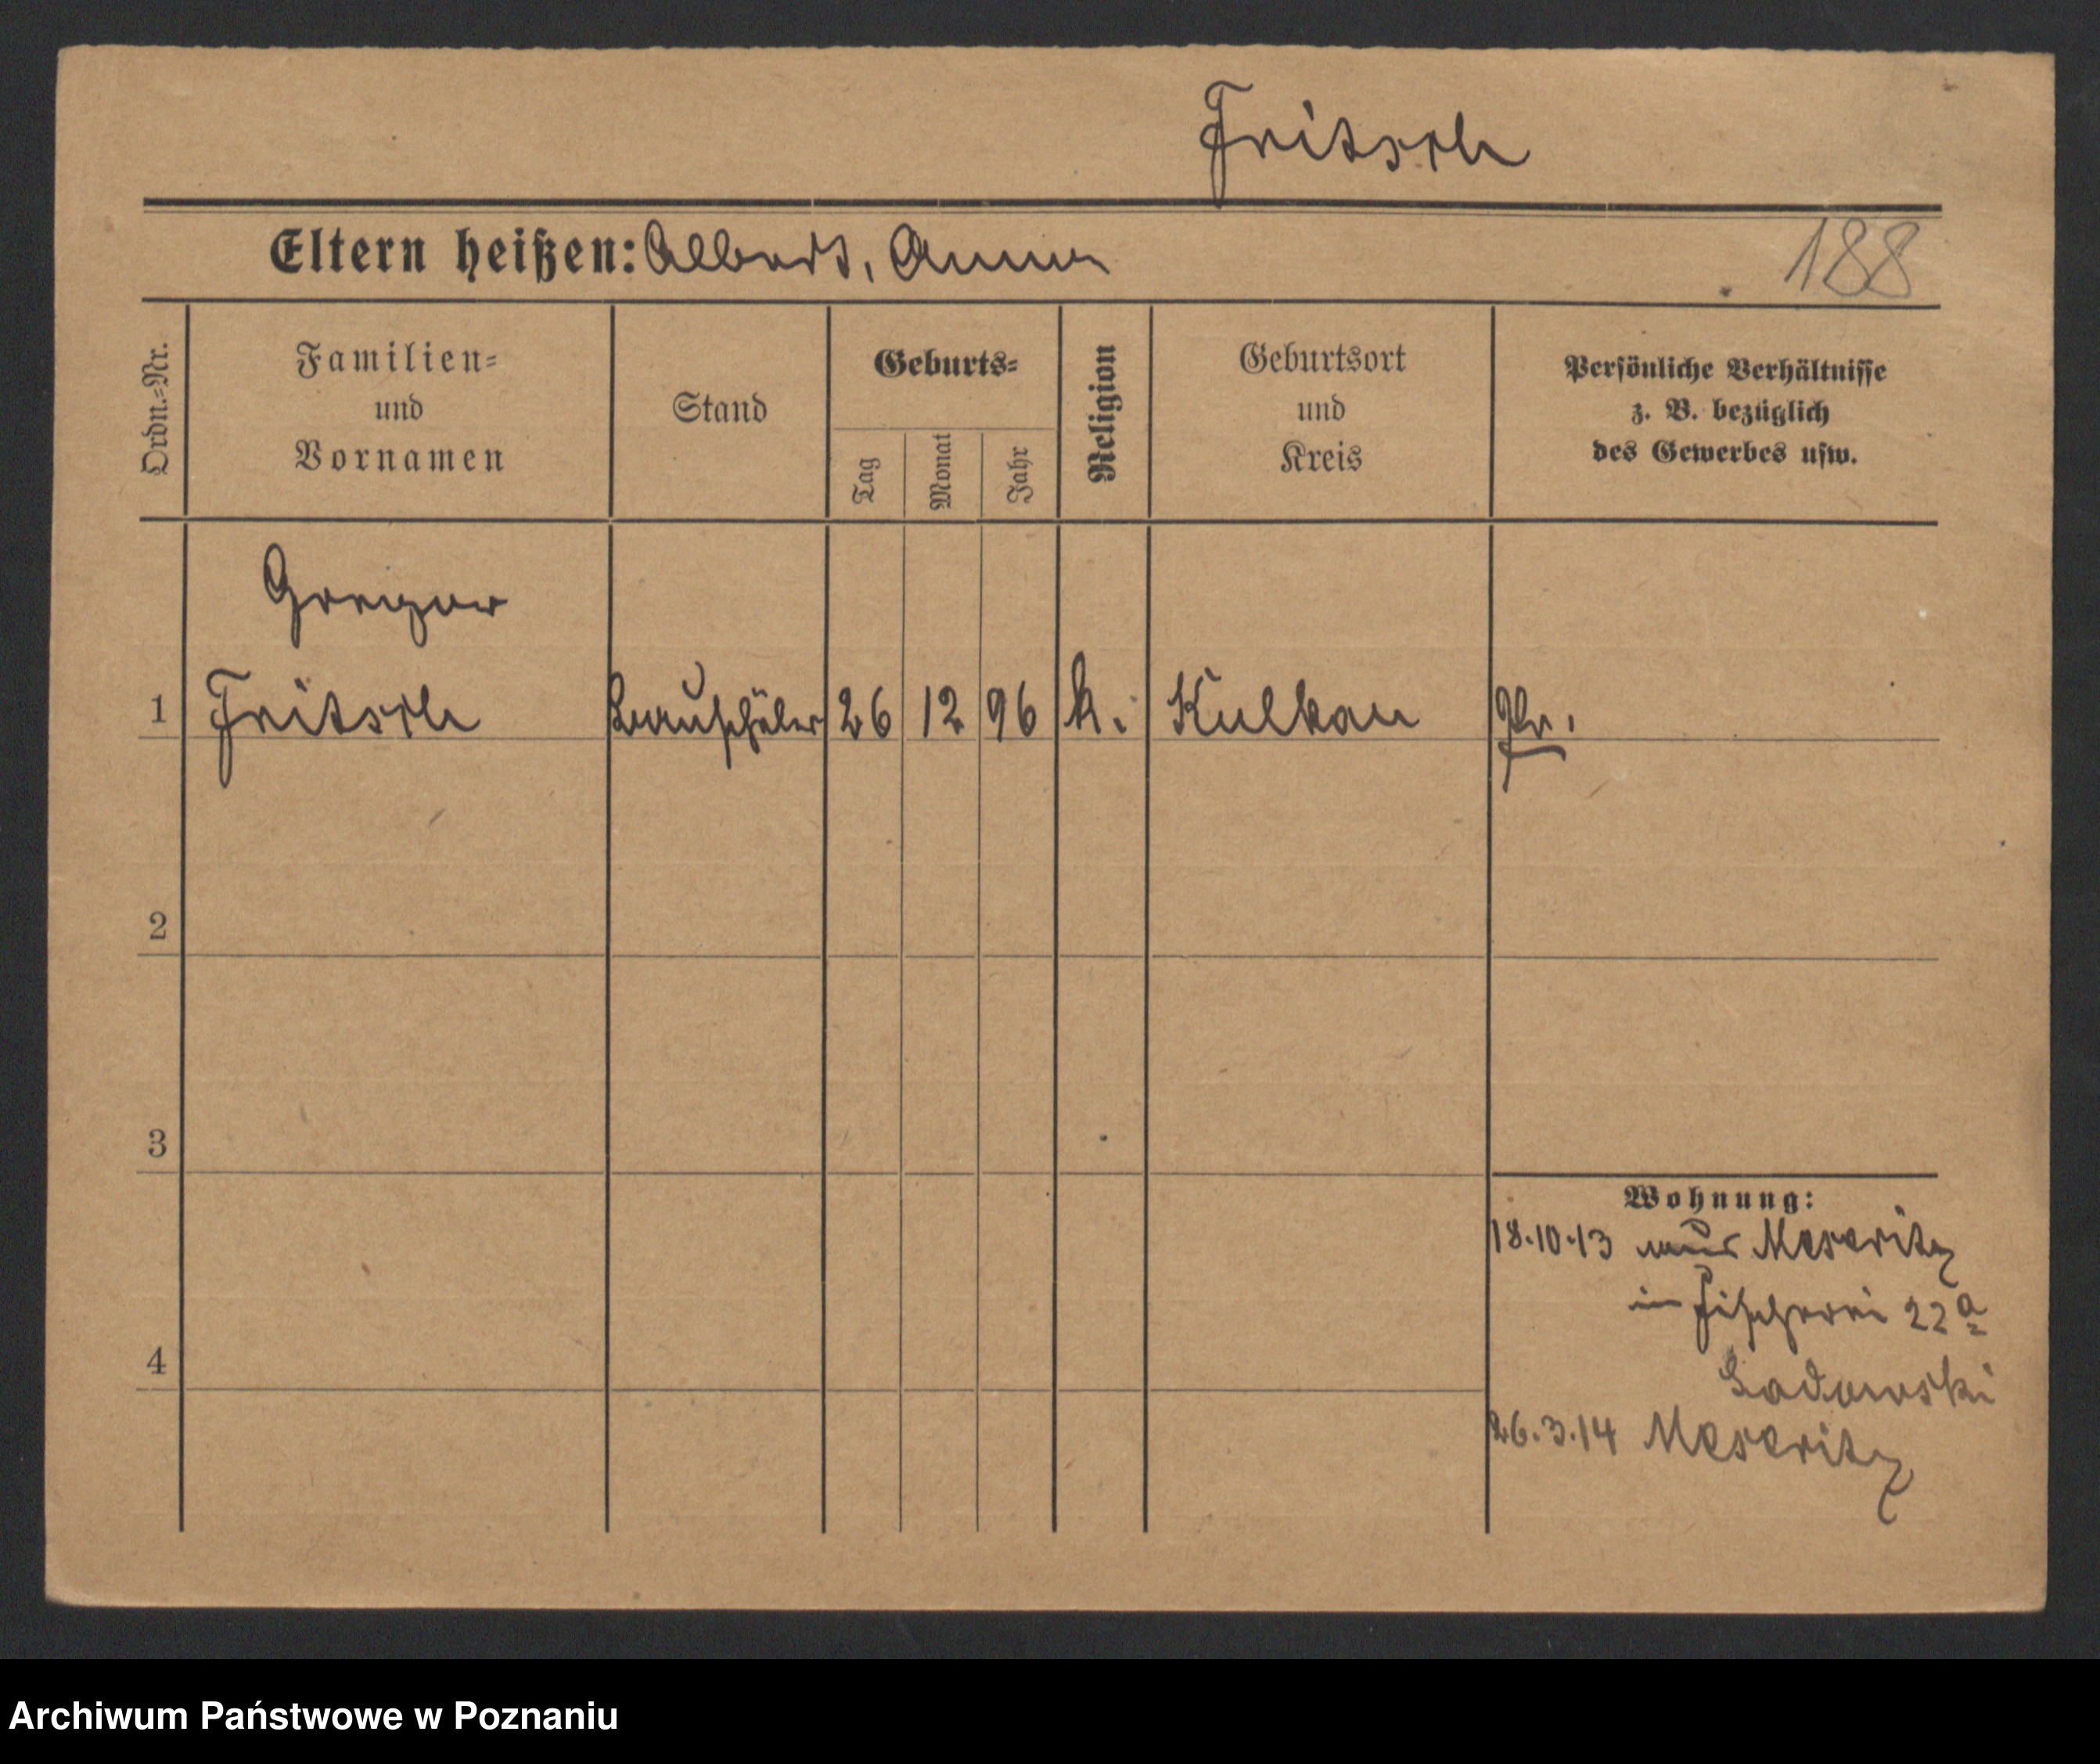 Fritsch
Eltern heißen: Albert, Anna
188
Ordn.=Nr.
Familien=
und
Vornamen
Stand
Geburts=
Tag
Monat
Jahr
Religion
Geburtsort
und
Kreis
Persönliche Verhältnisse
z. B. bezüglich
des Gewerbes usw.
Gregor
1 Fritsch Bauschüler 26 12 96 k. Kulkau Pr.
2
3
4
Wohnung:
18.10.13 aus Meseritz
in Fischerei 22a
Sadowski
26.3.14 Meseritz
Archiwum Państwowe w Poznaniu